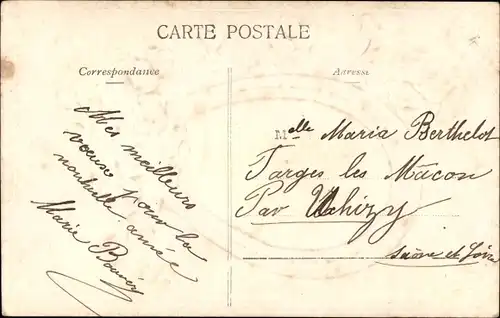 CARTE POSTALE
Correspondance
Adresse
Mes meilleurs
voeux pour la
nouvelle année
Marie
Melle Maria Berthelot
Farges les Macon
Par Uchizy
Saône et Loire